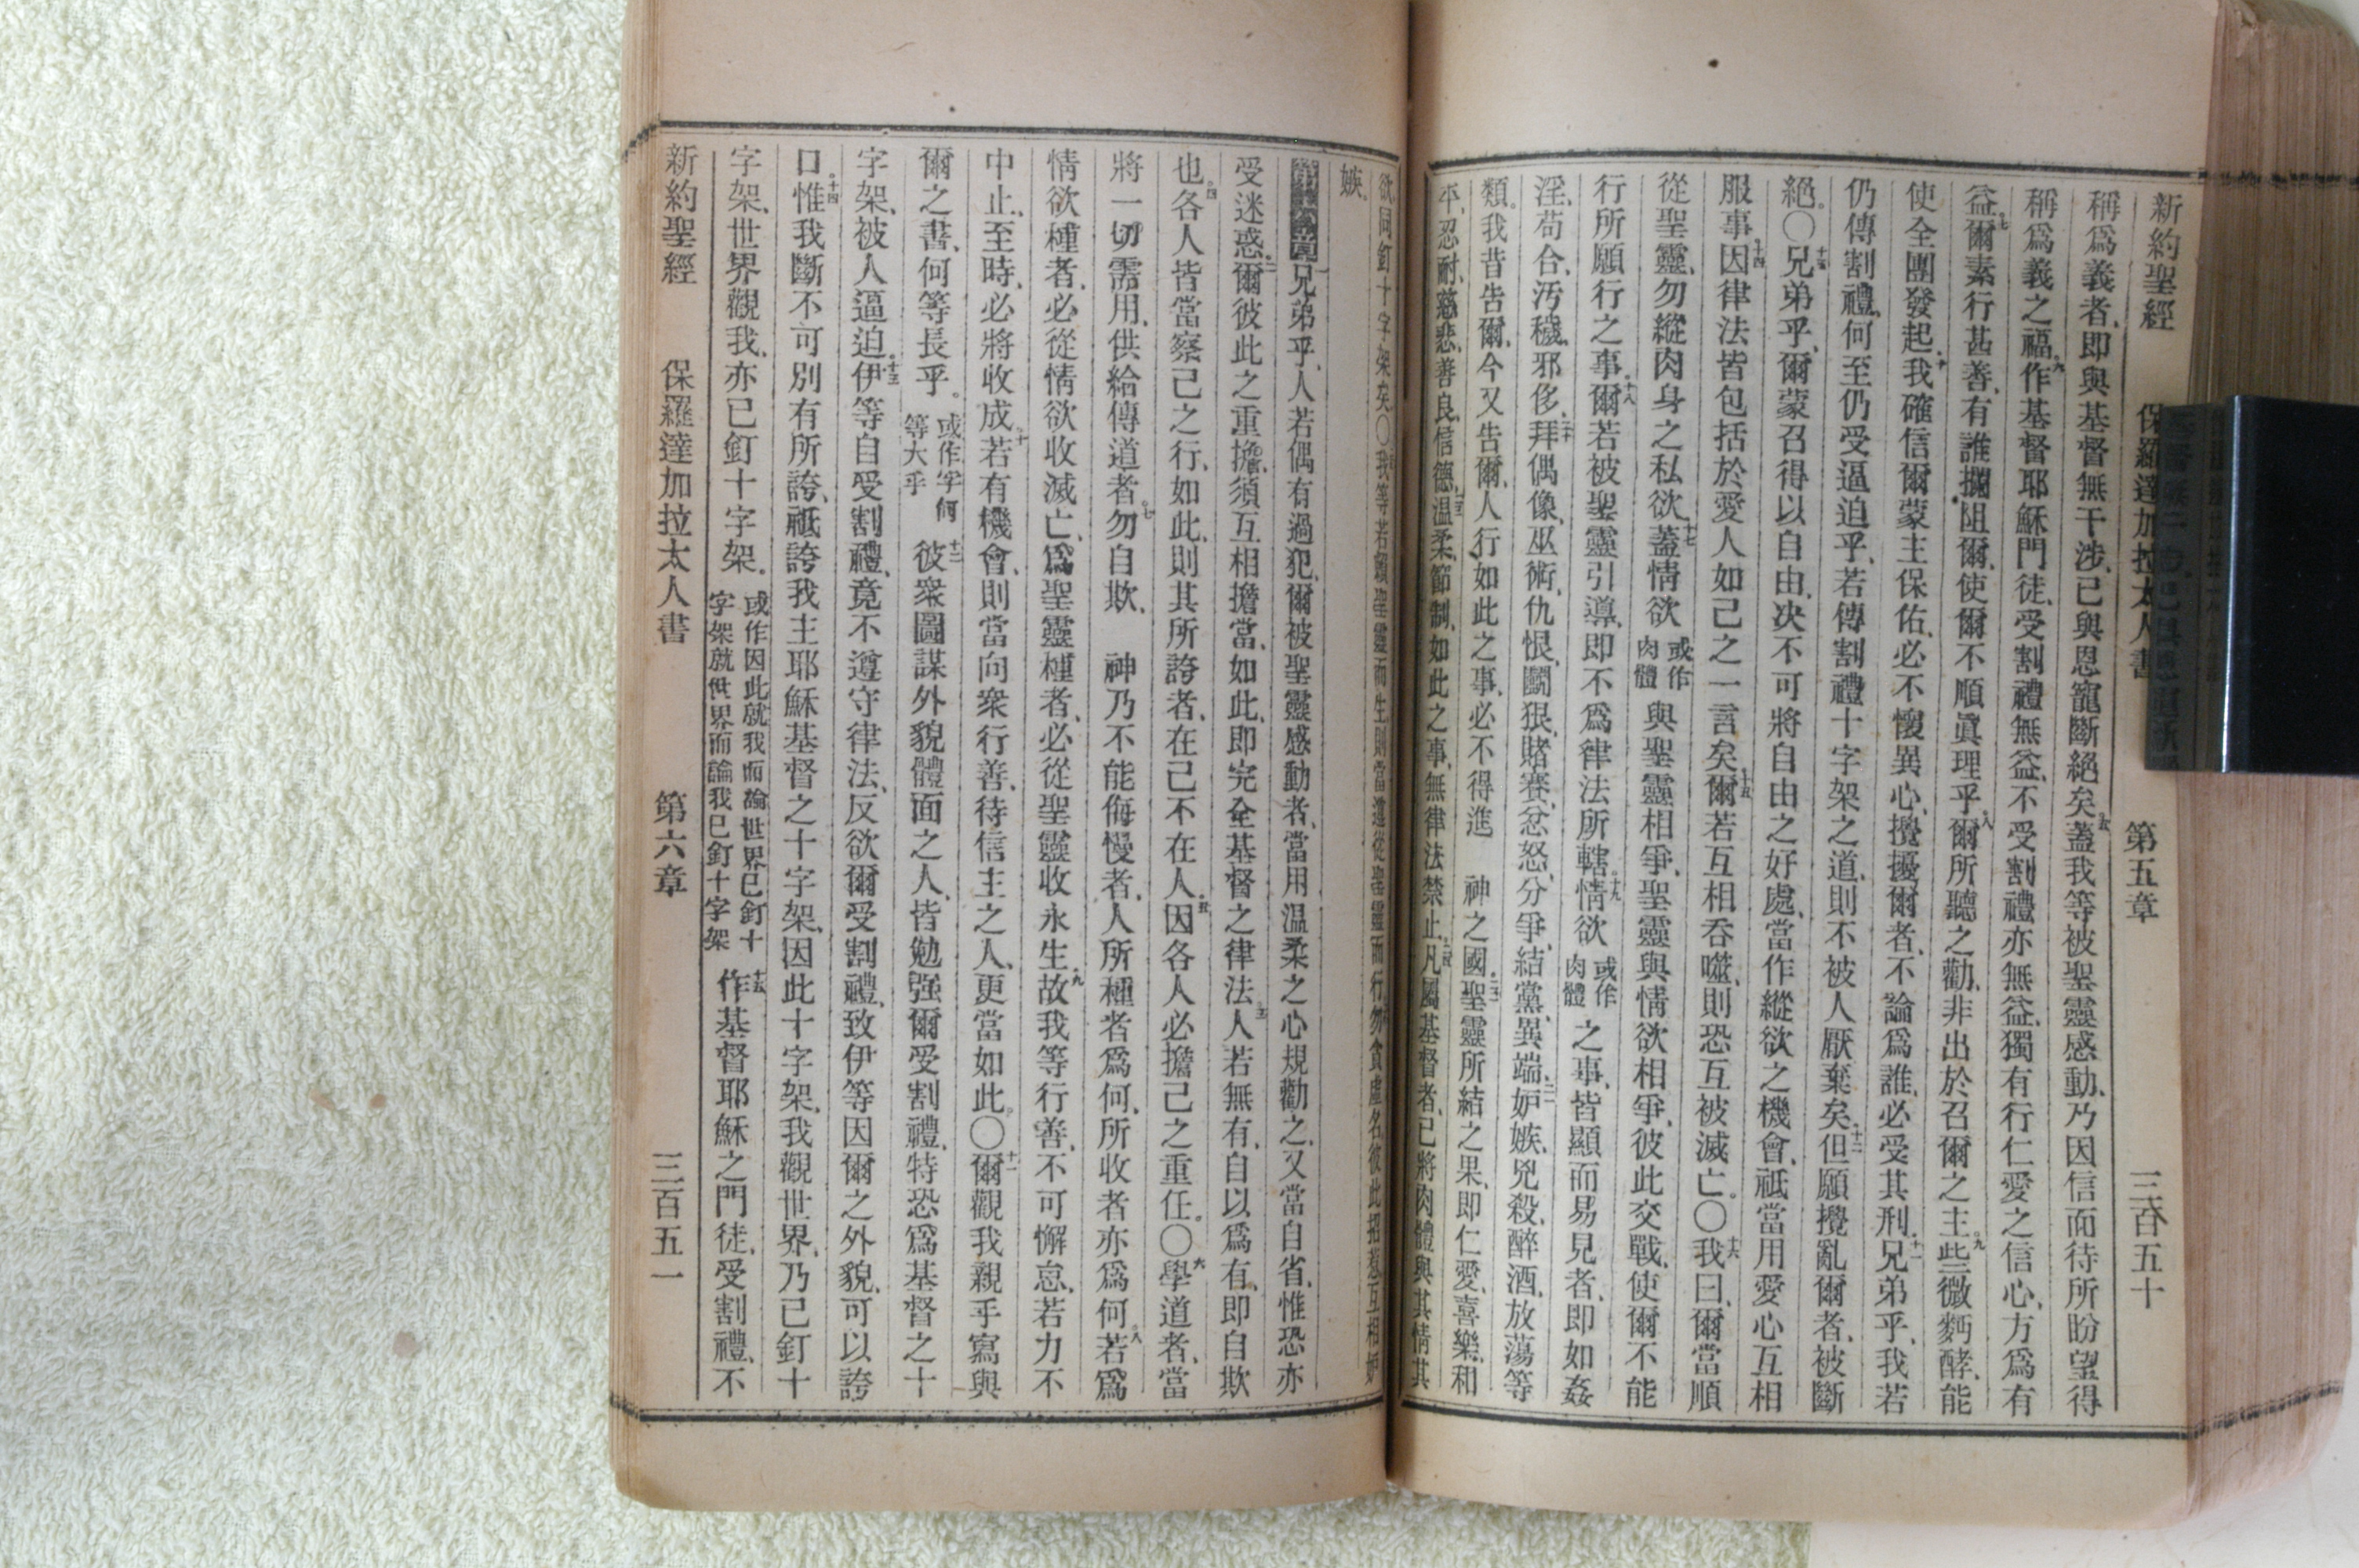 新約聖經 保羅達加拉太人書 第五章 三百五十
稱爲義者、即與基督無干涉、已與恩寵斷絕矣、五蓋我等被聖靈感動、乃因信而待所盼望得
稱爲義之福、六作基督耶穌門徒、受割禮無益、不受割禮亦無益、獨有行仁愛之信心、方爲有
益。七爾素行甚善、有誰攔阻爾、使爾不順眞理乎、八爾所聽之勸、非出於召爾之主、九些微麪酵、能
使全團發起、十我確信爾蒙主保佑、必不懷異心、攪擾爾者、不論爲誰、必受其刑、十一兄弟乎、我若
仍傳割禮、何至仍受逼迫乎、若傳割禮十字架之道、則不被人厭棄矣、十二但願攪亂爾者、被斷
絕。〇十三兄弟乎、爾蒙召得以自由、决不可將自由之好處、當作縱欲之機會、祗當用愛心互相
服事、十四因律法皆包括於愛人如己之一言矣、十五爾若互相吞噬、則恐互被滅亡。〇十六我曰、爾當順
從聖靈、勿縱肉身之私欲、十七蓋情欲或作肉體與聖靈相爭、聖靈與情欲相爭、彼此交戰、使爾不能
行所願行之事、十八爾若被聖靈引導、即不爲律法所轄、十九情欲或作肉體之事、皆顯而易見者、即如姦
淫、苟合、汚穢、邪侈、二十拜偶像、巫術、仇恨、鬭狠、賭賽、忿怒、分爭、結黨、異端、二一妒嫉、兇殺、醉酒、放蕩等
類。我昔告爾、今又告爾、人行如此之事、必不得進 神之國、二二聖靈所結之果、即仁愛、喜樂、和
平、忍耐、慈悲、善良、信德、二三温柔、節制、如此之事、無律法禁止、二四凡屬基督者、已將肉體與其情其
欲同釘十字架矣〇我等若賴聖靈而生、則當遵從聖靈而行、勿貪虛名、彼此招惹、互相妒
嫉。
第六章兄弟乎、人若偶有過犯、爾被聖靈感動者、當用温柔之心規勸之、又當自省、惟恐亦
受迷惑、二爾彼此之重擔、須互相擔當、如此、即完全基督之律法、三人若無有、自以爲有、即自欺
也。四各人皆當察己之行、如此、則其所誇者、在己不在人、五因各人必擔己之重任。〇六學道者、當
將一切需用、供給傳道者、七勿自欺、 神乃不能侮慢者、人所種者爲何、所收者亦爲何、八若爲
情欲種者、必從情欲收滅亡、爲聖靈種者、必從聖靈收永生、九故我等行善、不可懈怠、若力不
中止、至時、必將收成、十若有機會、則當向衆行善、待信主之人、更當如此。〇十一爾觀我親手寫與
爾之書、何等長乎。或作字何等大乎十二彼衆圖謀外貌體面之人、皆勉强爾受割禮、特恐爲基督之十
字架、被人逼迫、十三伊等自受割禮、竟不遵守律法、反欲爾受割禮、致伊等因爾之外貌、可以誇
口。十四惟我斷不可別有所誇、祗誇我主耶穌基督之十字架、因此十字架、我觀世界、乃已釘十
字架、世界觀我、亦已釘十字架。或作因此就我而論世界已釘十字架就世界而論我已釘十字架十五作基督耶穌之門徒、受割禮、不
新約聖經 保羅達加拉太人書 第六章 三百五一